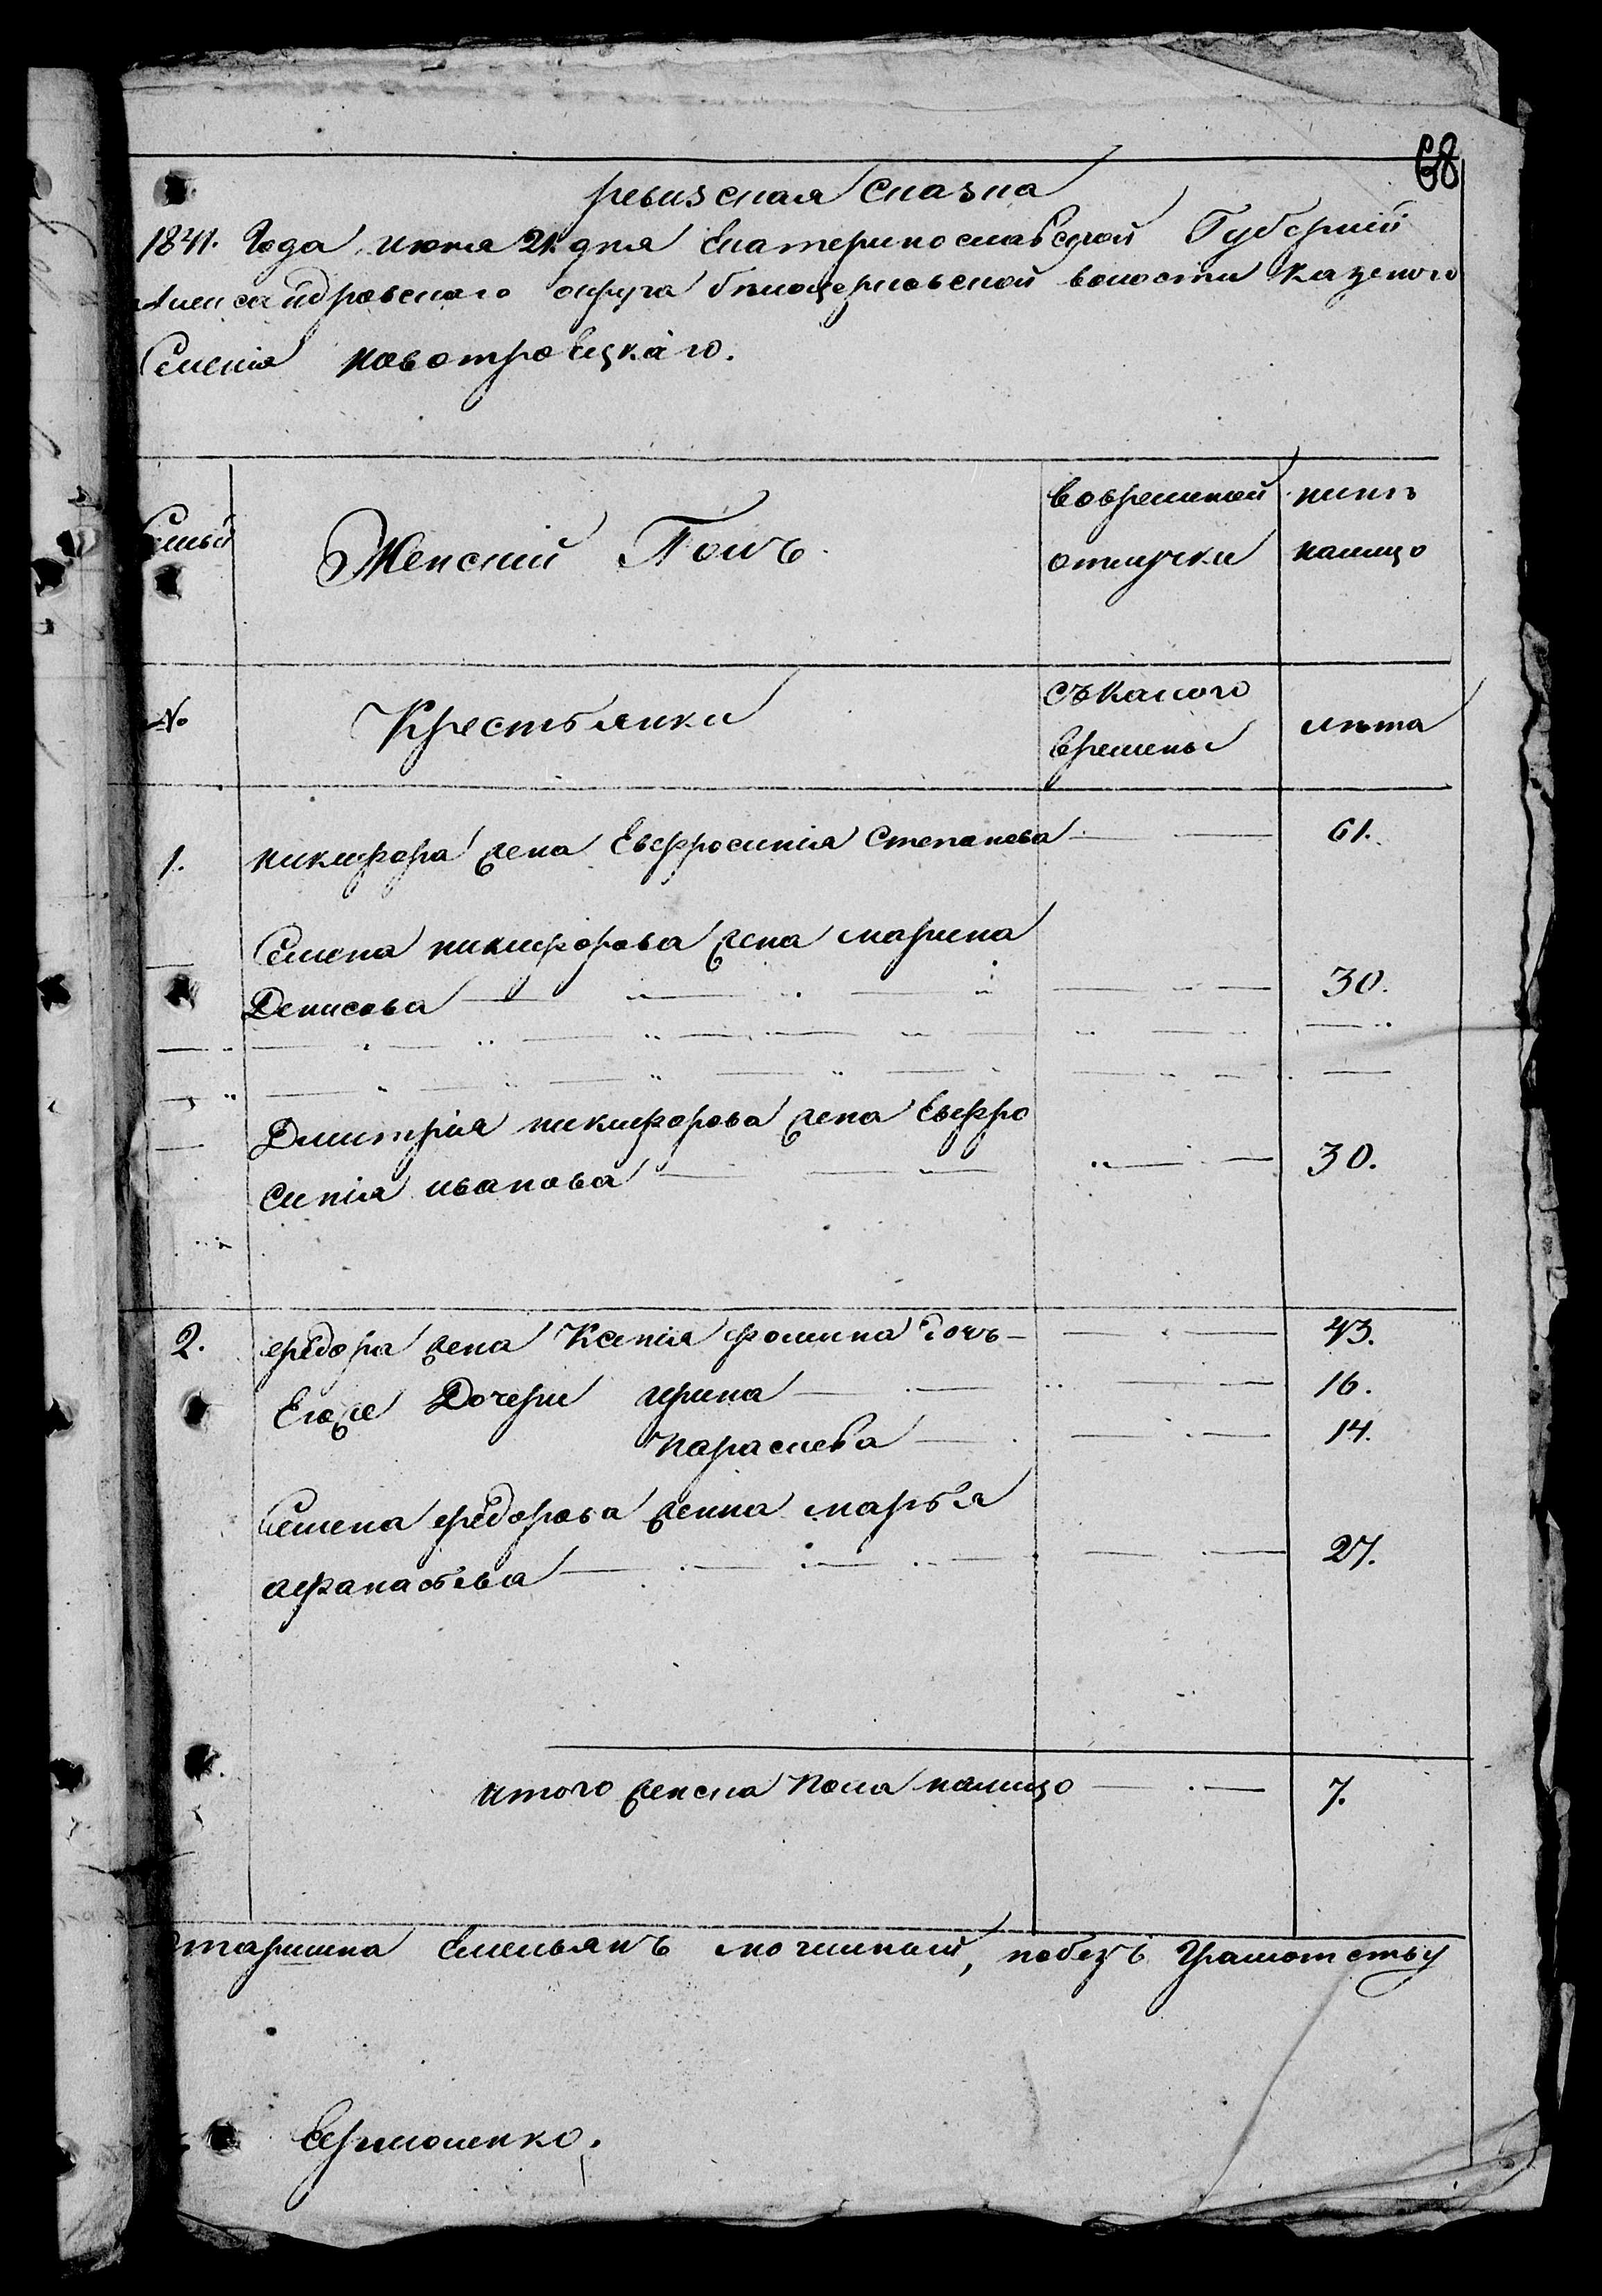 68
ревизская сказка
1841. Года июня 21. дня Екатеринославской Губернии
Александровскаго округа белоцерковской волости казеного
Селения новотроецкаго.
Семьи
Женский Полъ.
вовременой
отлучки
ныне
налицо
№
Крестьянки
съ какого
времены
лета
1. никифора жена Евфросиния Степанова 61.
Семена никифорова жена марина
Денисова 30.
Дмитрия никифорова жена Евфро
синия иванова 30.
2. федора жена Ксения фомина дочь 43.
Егоже Дочери ирина 16.
параскева 14.
Семена федорова женна марья
афанасьева 27.
итого женска пола налицо 7.
Старшина Емельянъ могильный, побезъ Грамотству
Ермоленко.